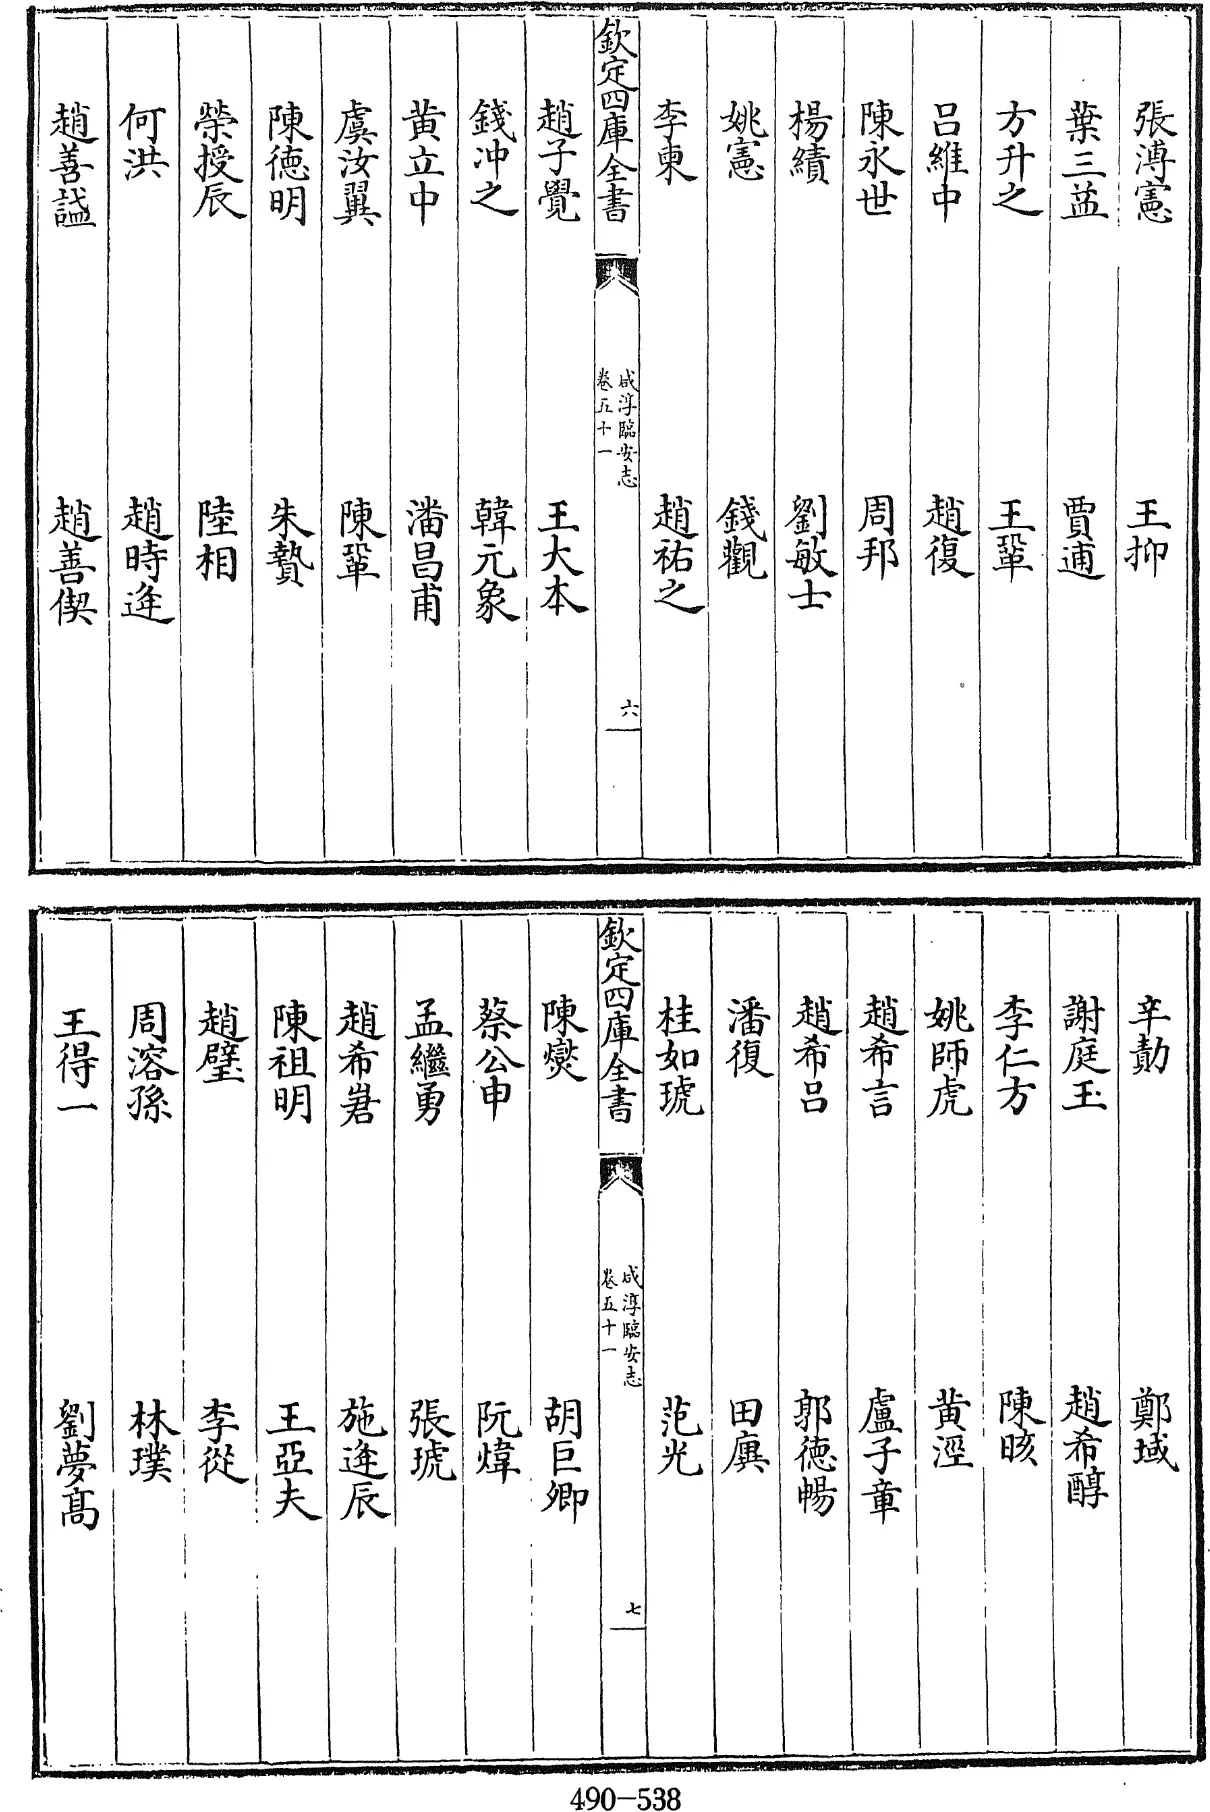 張溥憲　王抑
葉三益　賈逋
方升之　王鞏
呂維中　趙復
陳永世　周邦
楊績　劉敏士
姚憲　錢觀
李東　趙祐之
欽定四庫全書
咸淳臨安志
卷五十一
六
趙子覺　王大本
錢冲之　韓元象
黄立中　潘昌甫
虞汝翼　陳鞏
陳德明　朱贄
榮授辰　陸相
何洪　趙時逄
趙善諡　趙善偰
辛勣　鄭域
謝庭玉　趙希醇
李仁方　陳晐
姚師虎　黄涇
趙希言　盧子章
趙希呂　郭德暢
潘復　田廙
桂如琥　范光
欽定四庫全書
咸淳臨安志
卷五十一
七
陳爕　胡巨卿
蔡公申　阮煒
孟繼勇　張琥
趙希㟭　施逄辰
陳祖明　王亞夫
趙璧　李從
周溶孫　林璞
王得一　劉夢髙
490-538